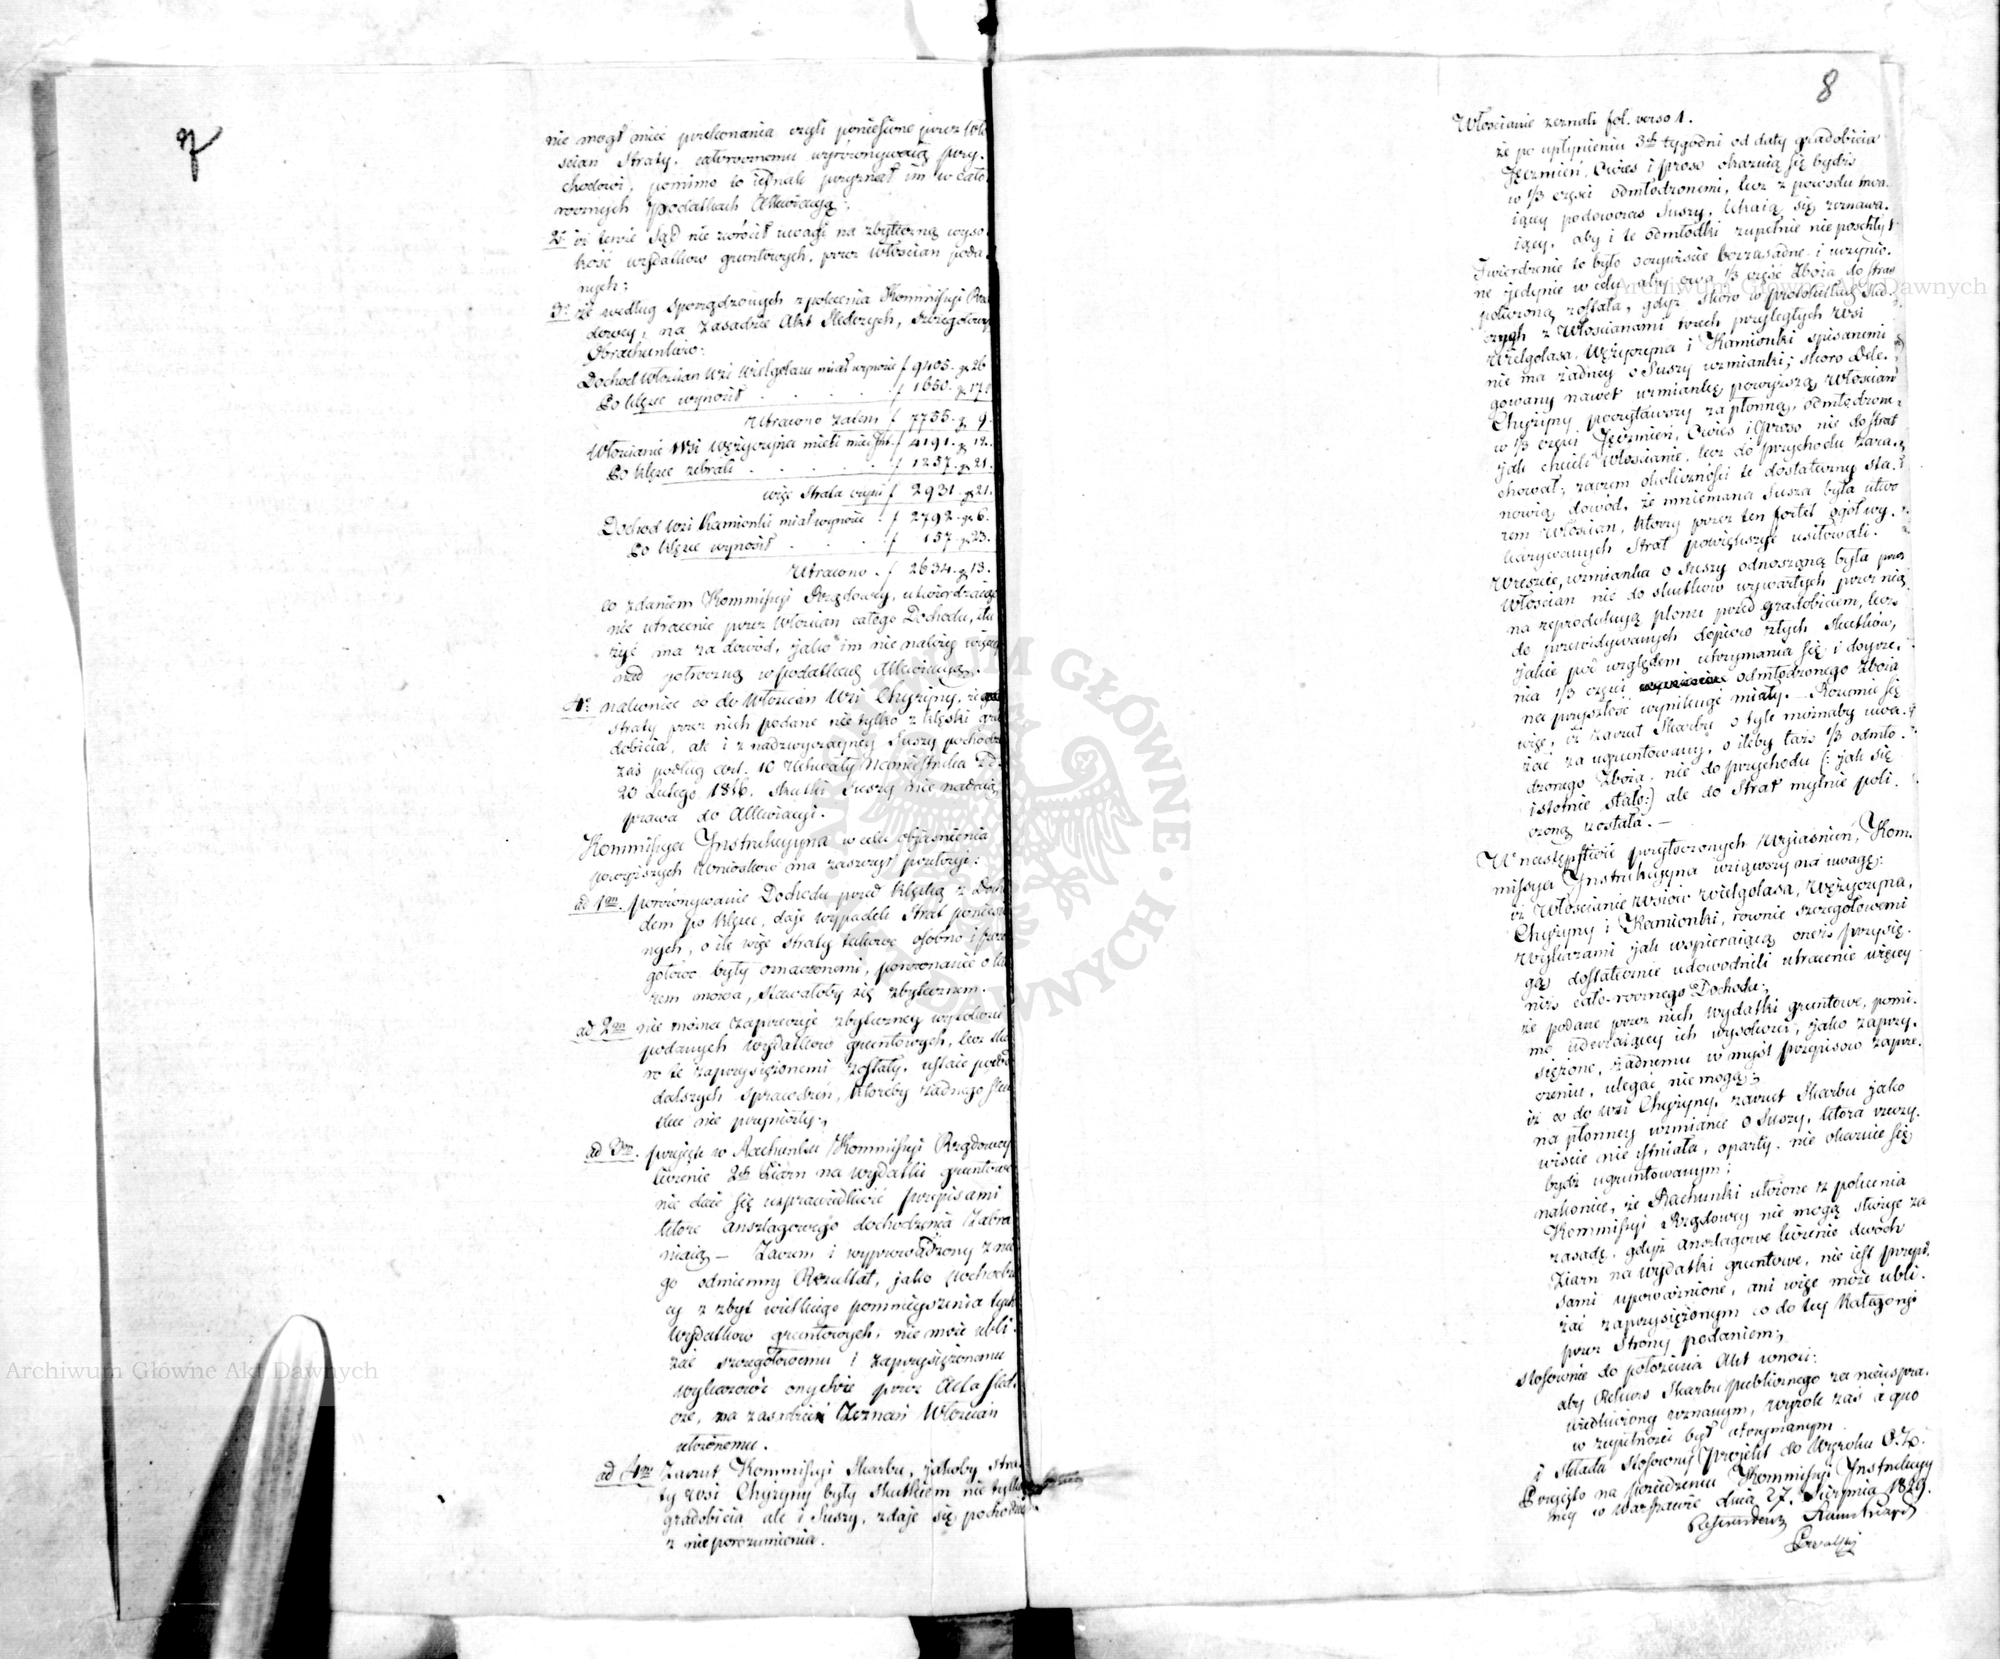 7
nie mogł mieć przekonania czyli poniesione przez Wło
scian Straty, całorocznemu wyrownywaią przy-
chodowi, pomimo to iednak przyznał im w cało
rocznych podatkach Allewiacyą;
2° iż tenże Sąd nie zwrócił uwagi na zbyteczną wyso
kość wydatkow gruntowych, przez włościan poda
nych;
3° że według sporządzonych z polecenia Kommissyi Rzą
dowey, na zasadzie Akt Śledczych, szczegołowych
Obrachunkow:
Dochod Włościan Wsi Wielgolasu miał wynosić f 9405. gr 26
Po klęsce wynosił . . . . f 1650. gr 17
Utracono zatem f 7755. gr 9.
Włościanie Wsi Wężyczyna mieli mieć f 4191. gr 12.
Po klęsce zebrali . . . . f 1257. gr 21.
więc Strata czyni f 2931. gr 21.
Dochod Wsi Kamionki miał wynosić . f 2792. gr 6.
Po klęsce wynosił . . . f 157. gr 23.
Utracono . f 2634. gr 13.
co zdaniem Kommissyi Rządowey, utwierdzaiące
nie utracenie przez Włościan całego Dochodu, słu
żyć ma za dowód, jako im nie należy więcey
nad połowczną w podatkach Allewiacyą.
4° nakoniec co do Włościan Wsi Chyżyny, że
straty przez nich podane nie tylko z klęski gra
dobicia, ale i z nadzwyczayney Suszy pochodzą
zaś podług art. 10 Uchwały Namiestnika z D.
20 Lutego 1816. skutki Suszy nie nadaią
prawa do Allewiacyi.
Kommissya Instrukcyyna w celu objasnienia
powyższych wnioskow ma zaszczyt przełożyć:
ad 1um. porównywanie Dochodu przed klęską z Docho
dem po klęsce, daje wypadek Strat poniesio
nych, o ile więc straty takowe osobno i szcze
gołowo były oznaczonemi, porownanie o któ
rem mowa, stawałoby się zbytecznem.
ad 2um nie można zaprzeczyć zbyteczney wysokości
podanych wydatkow gruntowych, lecz sko
ro te zaprzysiężonemi zostały, ustaie powod
dalszych sprawdzeń, ktoreby żadnego sku
tku nie przyniosły;
ad 3um. przyjęte w Rachunku Kommissyi Rządowey
liczenie 2ch Ziarn na wydatki gruntowe
nie daie się usprawiedliwić przepisami
które anszlagowego dochodzenia zabra
niaią — Zaczem i wyprowadzony z nie
go odmienny Rezultat, jako pochodzą
cy z zbyt wielkiego pomnieyszenia tych
wydatkow gruntowych, nie może ubli-
żać szczegółowemu i zaprzysiężonemu
wyliczeniu onychże przez Acta śled-
cze, na zasadzie Zeznań Włościan
ułożonemu.
ad 4um Zarzut Kommissyi Skarbu, jakoby stra
ty wsi Chyżyny były skutkiem nie tylko
gradobicia ale i Suszy, zdaje się pochodzić
z nieporozumienia.
8
Włościanie zeznali fol. verso 1.
że po upłynieniu 3ch tygodni od daty gradobicia
Jęczmień, Owies i proso okazuią się bydź
w ⅓ części odmłodzonemi, lecz z powodu trwa-
iącey podowczas Suszy, lękaią się zeznawa-
iący, aby i te odmłodki zupełnie nie poschły;
Twierdzenie to było oczywiście bezzasadne i uczynio-
ne jedynie w celu aby owa ⅓ część Zboża do strat
policzoną została, gdyż skoro w protokułach Śled-
czych z Włościanami trzech przyległych wsi
Wielgolasa, Wężyczyna i Kamionki spisanemi
nie ma żadney o Suszy wzmianki; skoro Dele-
gowany nawet wzmiankę powyższą Włościan
Chyżyny poczytawszy za płonną, odmłodzone
w ⅓ części Jęczmień, Owies i Proso nie do strat
jak chcieli Włościanie, lecz do przychodu zara-
chował; zaczem okoliczności te dostateczny sta-
nowią dowód, że mniemana Susza była utwo
rem Włościan, ktorzy przez ten fortel ogół wy-
kazywanych Strat powiększyć usiłowali.
Wreszcie, wzmianka o Suszy odnoszoną była przez
Włościan nie do skutkow wywartych przez nią
na reprodukcyą plonu przed gradobiciem, lecz
do przewidywanych dopiero złych skutków,
jakie pod względem utrzymania się i doyrze-
nia ⅓ części odmłodzonego Zboża
na przyszłość wyniknąć miały. — Rozumie się
więc, iż zarzut Skarbu o tyle możnaby uwa-
żać za ugruntowany, o ileby taż ⅓ odmło-
dzonego Zboża, nie do przychodu (: jak się
istotnie stało:) ale do Strat mylnie poli-
czoną została. —
W następstwie przytoczonych Wyjaśnień, Kom-
missya Instrukcyyna wziąwszy na uwagę:
iż Włościanie Wsiow Wielgolasa, Wężyczyna,
Chyżyny i Kamionki, rownie szczegołowemi
Wykazami jak wspieraiącą oneż przysię-
gą dostatecznie udowodnili utracenie więcey
niż cało-rocznego Dochodu;
że podane przez nich wydatki gruntowe, pomi-
mo uderzaiącey ich wysokości, jako zaprzy-
siężone, żadnemu w myśl przepisow zaprze-
czeniu, ulegać nie mogą;
iż co do wsi Chyżyny, zarzut Skarbu jako
na płonney wzmiance o Suszy, która rzeczy-
wiście nie istniała, oparty, nie okazuie się
bydź ugruntowanym;
nakoniec, że Rachunki ułożone z polecenia
Kommissyi Rządowey nie mogą służyć za
zasadę, gdyż anszlagowe liczenie dwóch
Ziarn na wydatki gruntowe, nie iest przepi-
sami upoważnione, ani więc może ubli-
żać zaprzysiężonym co do tey Kategoryi
przez Strony podaniem;
Stosownie do położenia Akt wnosi:
aby Rekurs Skarbu publicznego za nieuspra-
wiedliwiony uznanym, wyrok zaś a quo
w zupełności był utrzymanym
i składa stosowny Projekt do Wyroku O.Z.
Przyjęto na posiedzeniu Kommissyi Instrukcyy
ney w Warszawie dnia 27. Sierpnia 1829.
Referendarz
Archiwum Główne Akt Dawnych
Archiwum Główne Akt Dawnych
ARCHIWUM GŁÓWNE AKT DAWNYCH